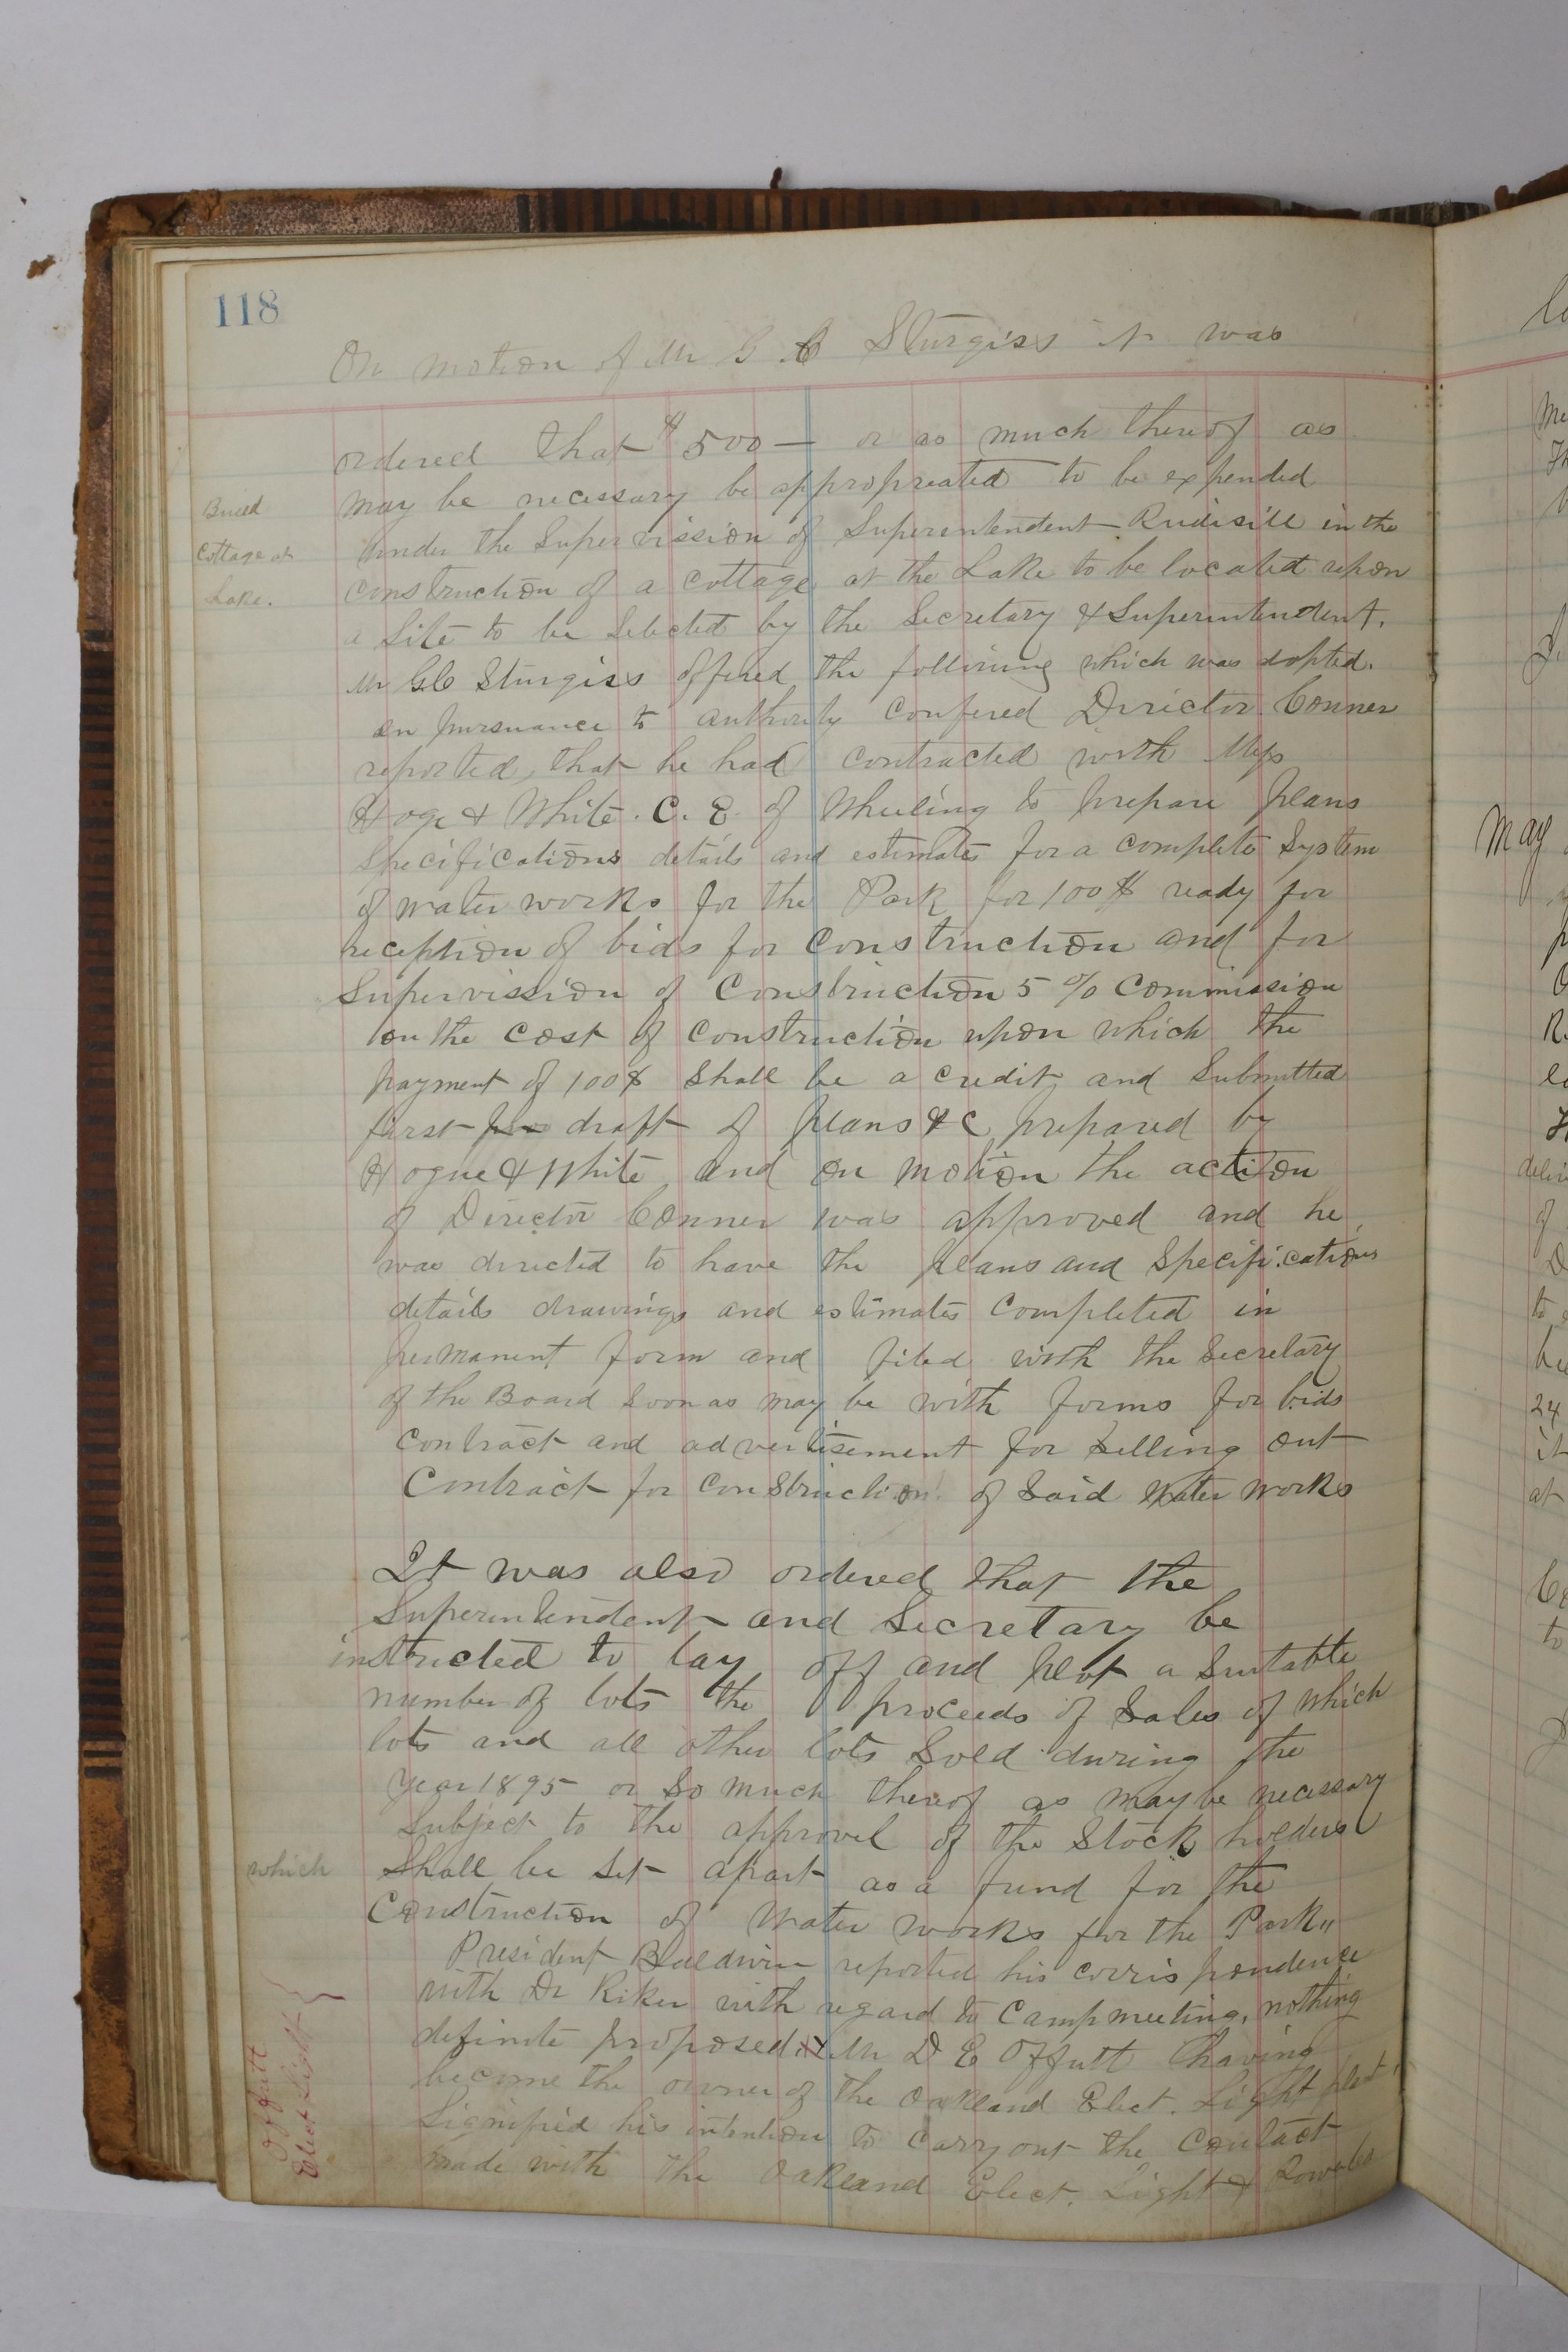 118
On motion of Mr G C Sturgiss it was
ordered that $500— or as much thereof as
may be necessary be appropreated to be expended
Build
under the Supervission of Superentendent Rudisill in the
Cottage at
construction of a cottage at the Lake to be located upon
Lake.
a Site to be Selected by the Secretary & Superintendent.
Mr G C Sturgiss offered the following which was adopted.
In pursuance to authority confered Director Conner
reported, that he had contracted with Mess
Hoge & White. C. E. of Wheeling to prepare plans
Specifications details and estimates for a complete System
of water works for the Park for 100$ ready for
reception of bids for Construction and for
Supervission of Construction 5 % Commission
on the Cost of Construction upon which the
payment of 100$ Shall be a credit and Submitted
first draft of plans &C prepared by
Hogue & White and on motion the action
of Director Conner was approved and he
was directed to have the plans and Specifications
details drawings and estimates Completed in
permanent form and filed with the Secretary
of the Board Soon as may be with forms for bids
Contract and advertisement for Selling out
Contract for Construction of Said Water Works
It was also ordered that the
Superintendent and Secretary be
instructed to lay off and plot a Suitable
number of lots the proceeds of Sales of which
lots and all other lots Sold during the
Year 1895 or So much thereof as may be necessary
Subject to the approvel of the Stock holders
which Shall be Set apart as a fund for the
Construction of Water works for the Park"
President Baldwin reported his corrispondence
with Dr Riker with regard to Camp meeting, nothing
definite proposed. Mr D E Offutt having
become the owner of the Oakland Elect. Light plant
Offutt
Elect Light
Signified his intention to Carry out the Contact
made with the Oakland Elect. Light &
May